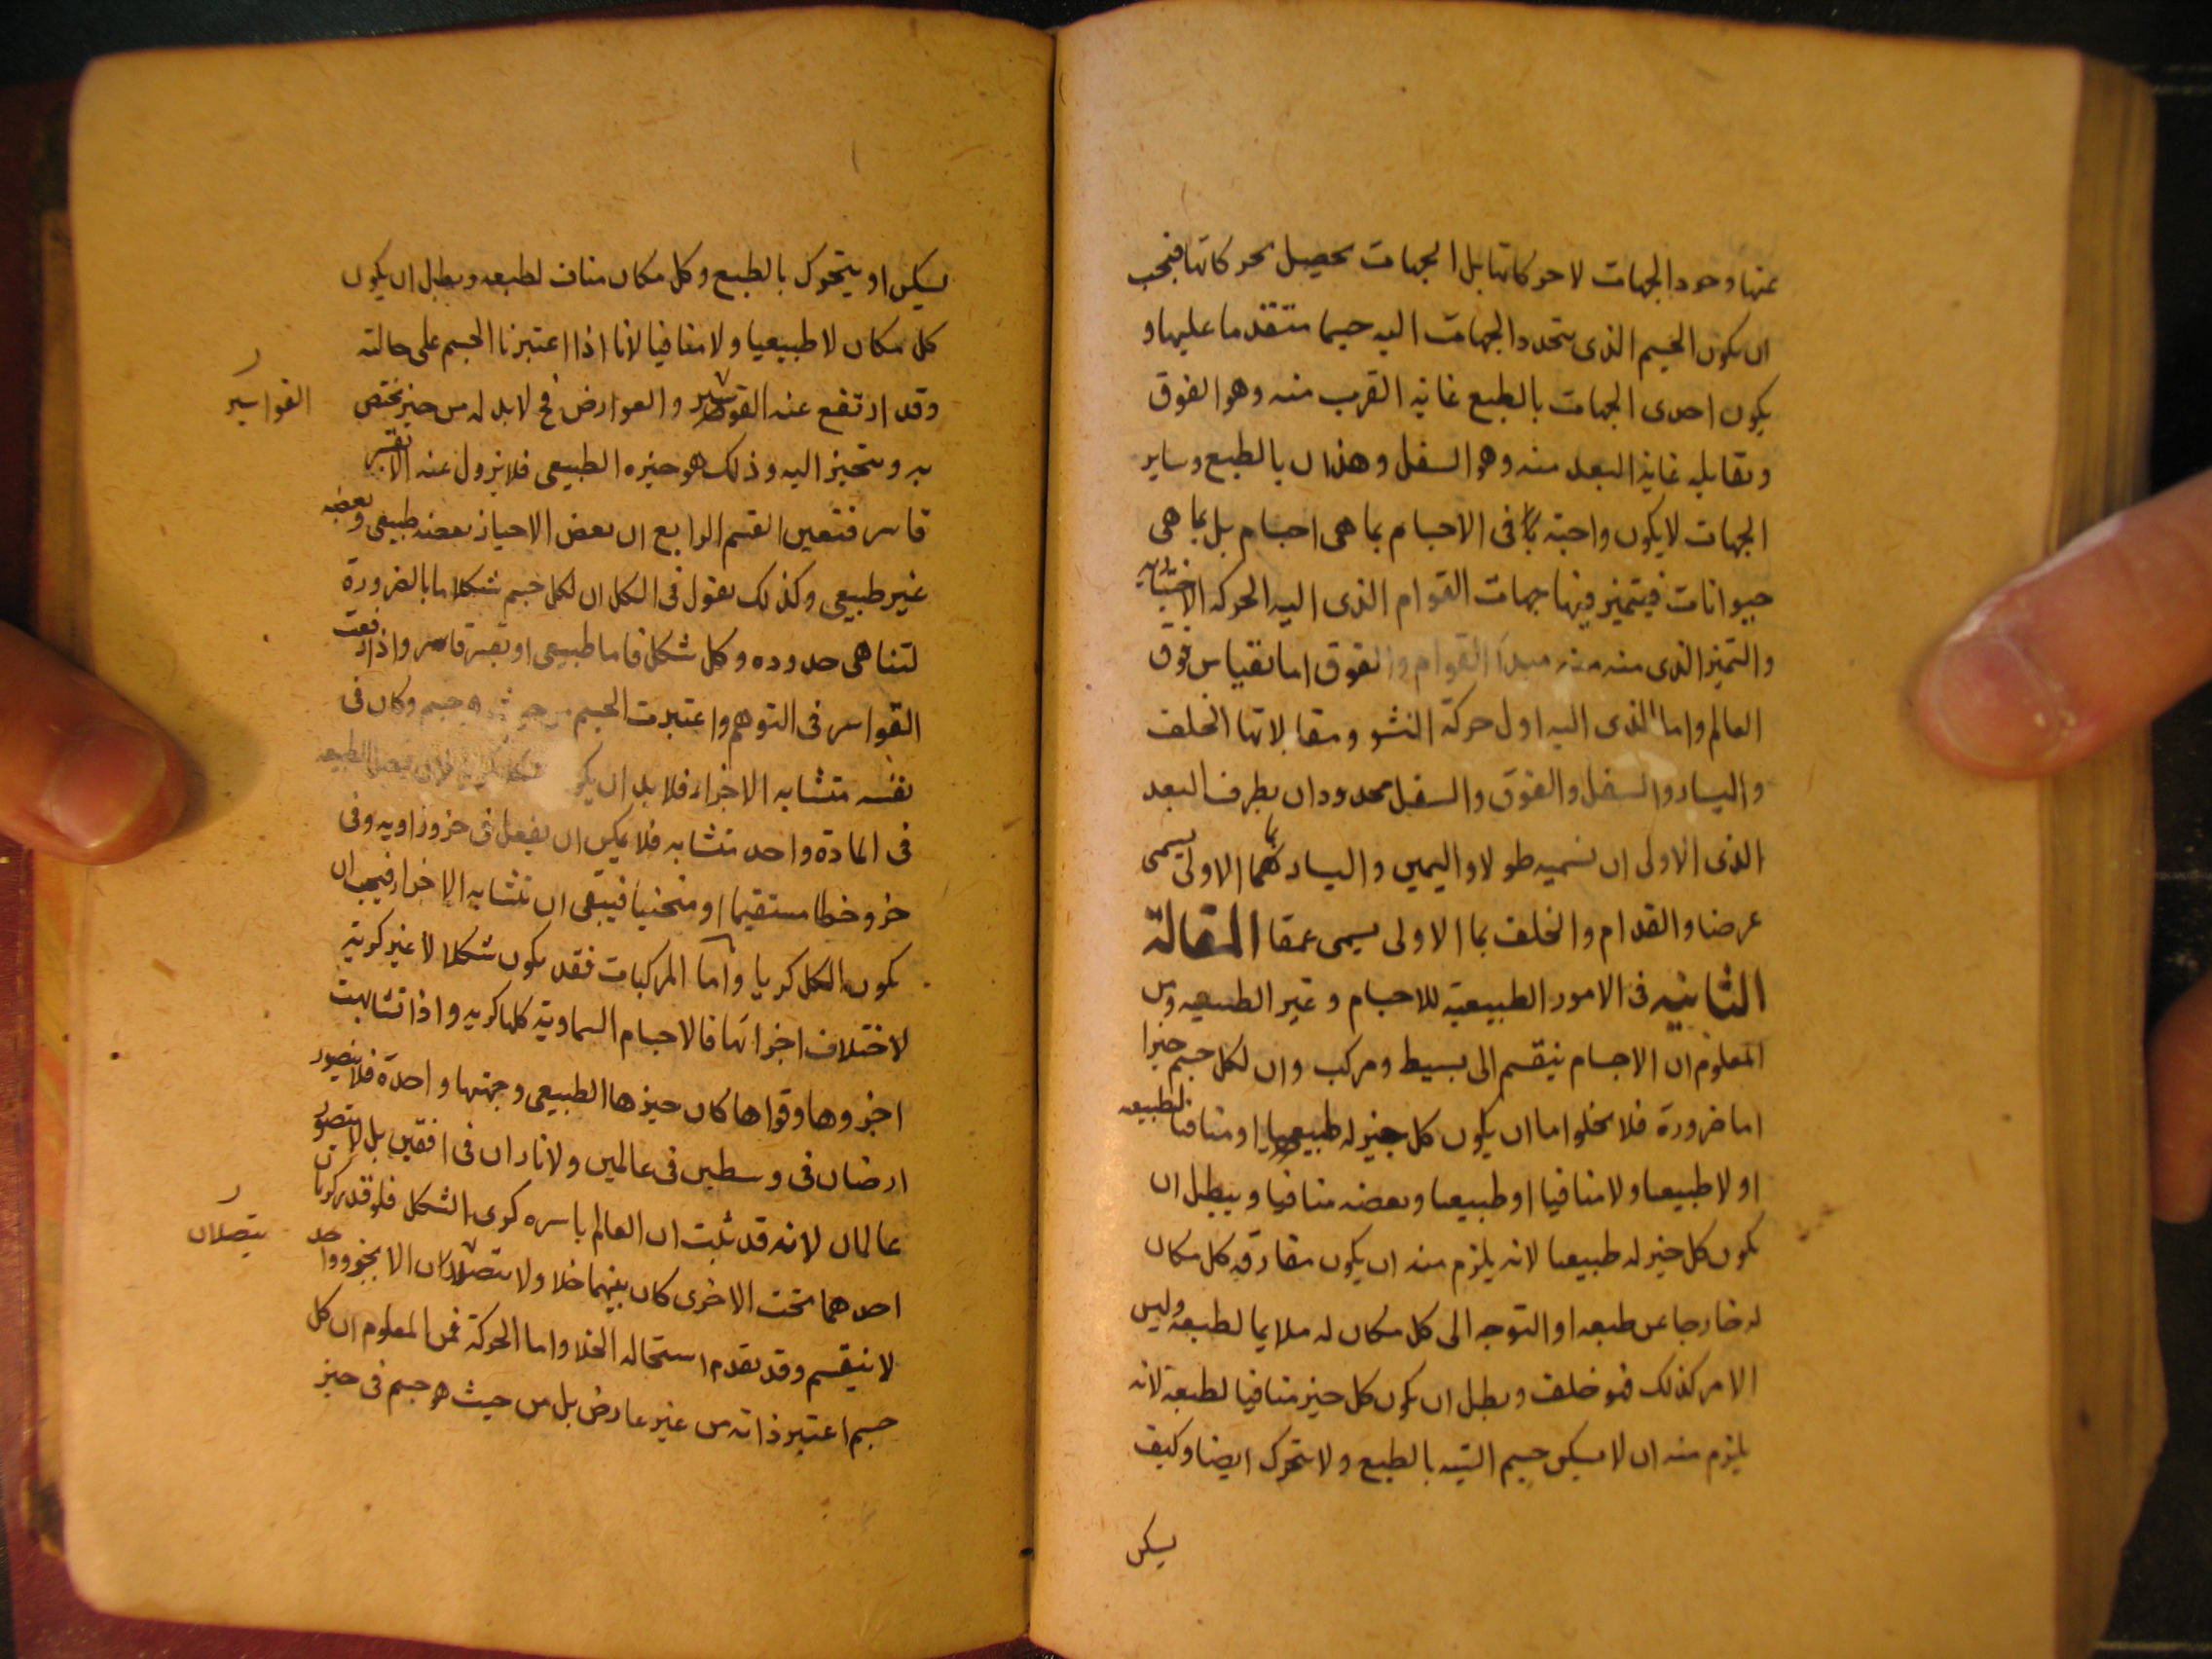 عنها وجود الجهات لا حركاتها بل الجهات يحصل بحركاتها فيجب
ان يكون الجسم الذى يتحدد الجهات اليه جسما متقدما عليها و
يكون احدى الجهات بالطبع غاية القرب منه وهو الفوق
ويقابله غاية البعد منه وهو السفل وهذان بالطبع وساير
الجهات لا يكون واجبة فى الاجسام بما هى اجسام بل بما هى
حيوانات فيتميز فيها جهات القوام الذى اليه الحركه الاختياريه
والتميز الذى منه مبدأ القوام والفوق اما بقياس فوق
العالم واما الذى اليه اول حركة النشو ومقابلاتها الخلف
واليسار والسفل والفوق والسفل محدودان بطرف البعد
الذى الاولى ان نسميه طولا واليمين واليسار بما الاولى يسمى
عرضا والقدام والخلف بما الاولى يسمى عمقا المقالة
الثانيه فى الامور الطبيعية للاجسام وغير الطبيعيه ومن
المعلوم ان الاجسام ينقسم الى بسيط ومركب وان لكل جسم حيزا
اما ضرورة فلا يخلوا اما ان يكون كل حيز له طبيعيا او منافيا لطبيعه
او لا طبيعيا ولا منافيا او طبيعيا وبعضه منافيا ويبطل ان
يكون كل حيز له طبيعيا لانه يلزم منه ان يكون مفارقة كل مكان
له خارجا عن طبعه او التوجه الى كل مكان له ملايما لطبعه وليس
الامر كذلك فهو خلف وبطل ان يكون كل حيز منافيا لطبعه لانه
يلزم منه ان لا يسكن جسم البتيه بالطبع ولا يتحرك ايضا وكيف
يسكن
يسكن او يتحرك بالطبع وكل مكان مناف لطبعه وبطل ان يكون
كل مكان لا طبيعيا ولا منافيا لانا اذا اعتبرنا الجسم على حالته
وقد ارتفع عنه القواسر والعوارض فح لابد له من حيز يختص
القواسر
به ويتحيز اليه وذلك هو حيزه الطبيعى فلا يزول عنه الا بقسر
قاسر فتعين القسم الرابع ان بعض الاحياز بعضه طبيعى وبعضه
غير طبيعى وكذلك نقول فى الشكل ان لكل جسم شكلا ما بالضرورة
لتناهى حدوده وكل شكل فاما طبيعى او بقسر قاسر واذا رفعت
القواسر فى التوهم واعتبرت الجسم من حيث هو جسم وكان فى
نفسه متشابه الاجزاء فلا بد ان يكون لان فعل الطبيعه
فى المادة واحد متشابه فلا يمكن ان يفعل فى جزو زاويه وفى
جزو خطا مستقيما او منحنيا فينبغى ان تتشابه الاجزاء فيجب ان
يكون الشكل كريا واما المركبات فقد يكون شكلا لا غير كريه
لاختلاف اجزائها فالاجسام السماوية كلها كريه واذا تشابهت
اجزوها وقواها كان حيزها الطبيعى وجهتها واحدة فلا يتصور
ارضان فى وسطين فى عالمين ولا ناران فى افقين بل لا يتصور
عالمان لانه قد ثبت ان العالم باسره كرى الشكل فلو قدر كريان
احدهما تحت الاخرى كان بينهما خلا ولا يتصلان الا بجزو واحد
يتصلان
لا ينقسم وقد تقدم استحاله الخلا واما الحركة فمن المعلوم ان كل
جسم اعتبر ذاته من غير عارض بل من حيث هو جسم فى حيز